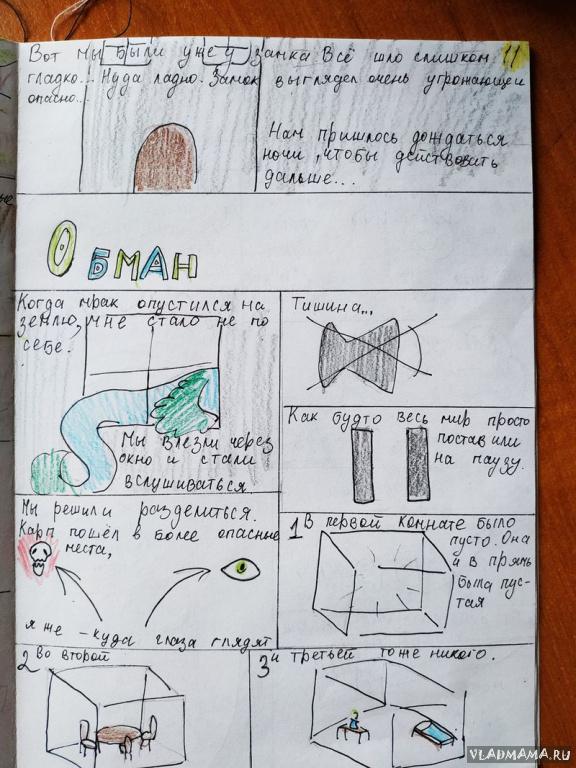 Вот мы были уже у замка Всё шло слишком
11
гладко... Ну да ладно. Замок выглядел очень угрожающе и
опасно...
Нам пришлось дождаться
ночи, чтобы действовать
дальше...
Обман
Когда мрак опустился на
землю, мне стало не по
себе.
Мы влезли через
окно и стали
вслушиваться.
Тишина...
Как будто весь мир просто
поставили
на паузу.
Мы решили разделиться.
Карп пошёл в более опасные
места,
я же - куда глаза глядят
1 В первой комнате было
пусто. Она
и в прямь
была пус-
тая
2 Во второй
3 и третьей тоже никого.
VLADMAMA.RU